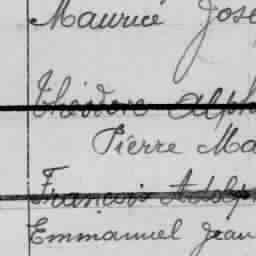 Maurice Jose
Théodore Alph
Pierre Ma
François Adolph
Emmanuel Jean